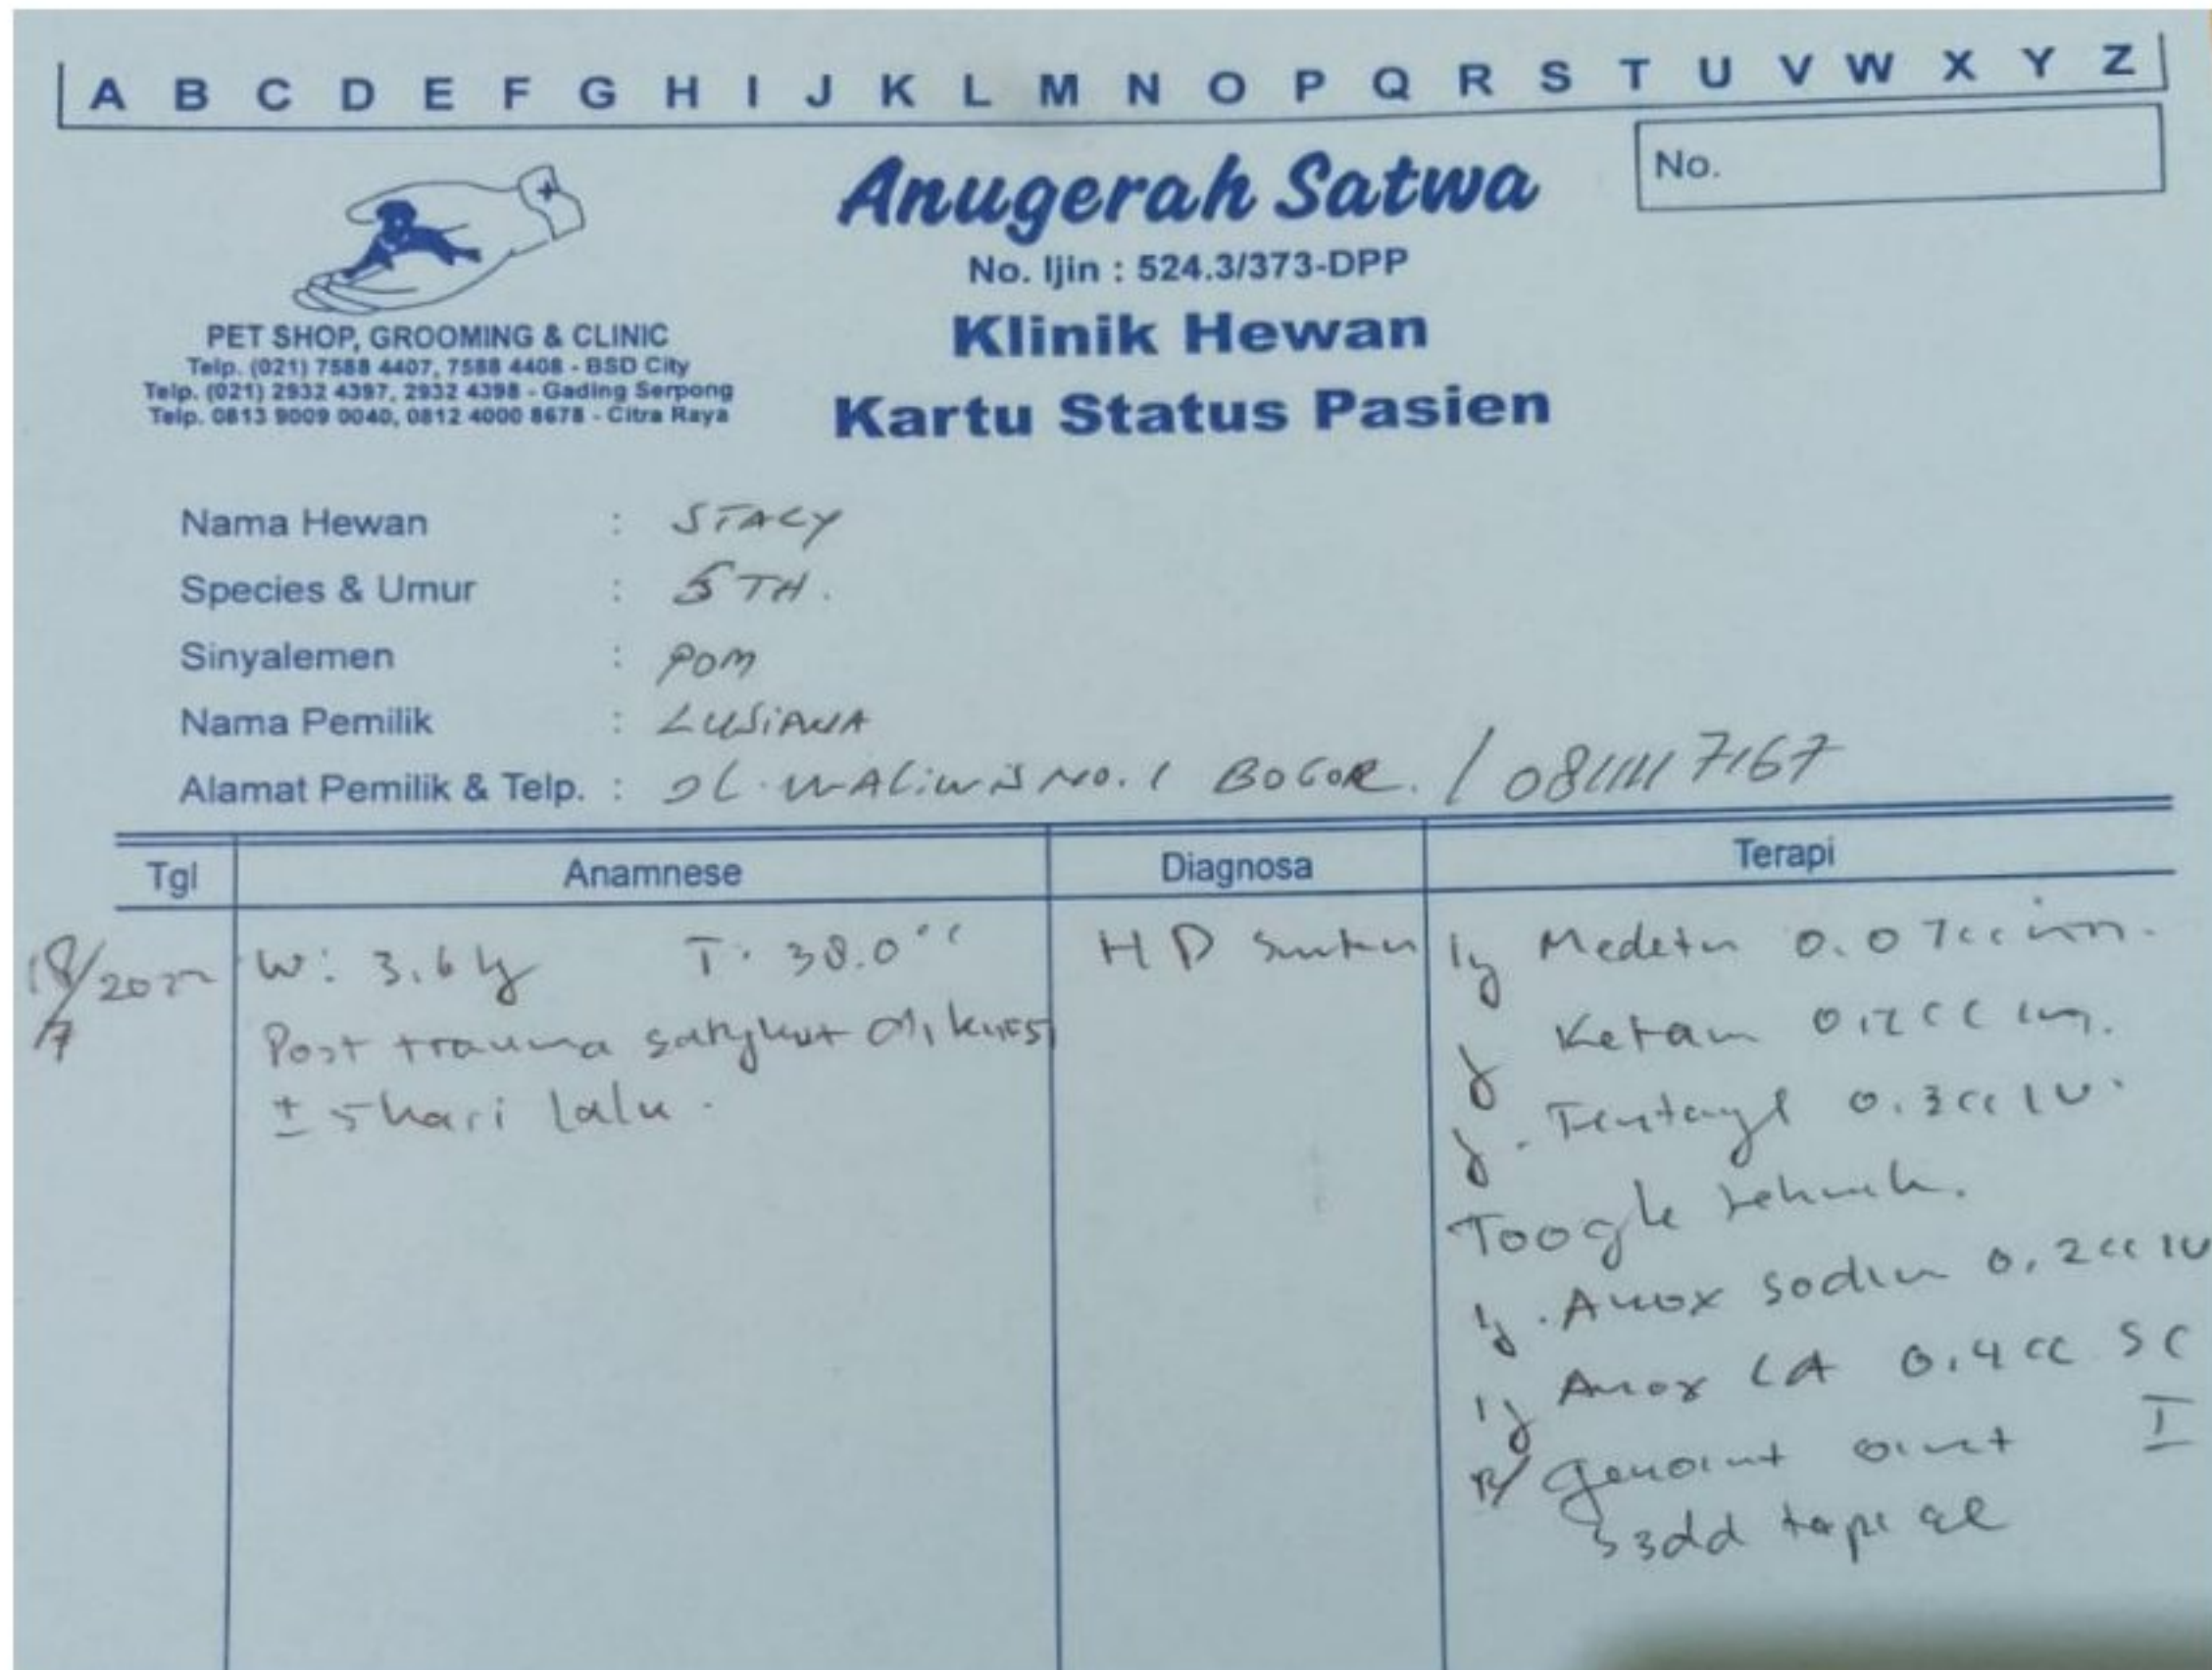 A B C D E F G H I J K L M N O P Q R S T U V W X Y Z
No.
Anugerah Satwa
No. Ijin : 524.3/373-DPP
Klinik Hewan
Kartu Status Pasien
PET SHOP, GROOMING & CLINIC
Telp. (021) 7588 4407, 7588 4408 - BSD City
Telp. (021) 2932 4397, 2932 4398 - Gading Serpong
Telp. 0813 9009 0040, 0812 4000 8678 - Citra Raya
Nama Hewan : STACY
Species & Umur : 5 TH.
Sinyalemen : POM
Nama Pemilik : LUSIANA
Alamat Pemilik & Telp. : JL. WALIWIS NO. 1 BOGOR. /
Tgl Anamnese Diagnosa Terapi
18/7 2022
W: 3.6 kg T: 38.0°C
Post trauma
± 5 hari lalu.
HD
Medetu 0.07cc im.
Ketam im.
Fentanyl 0.3cc IV.
Toogle tehnik.
Amox sodiu 0,2cc IV
Amox LA 0,4cc SC
R/ Genoint oint I
S 3dd